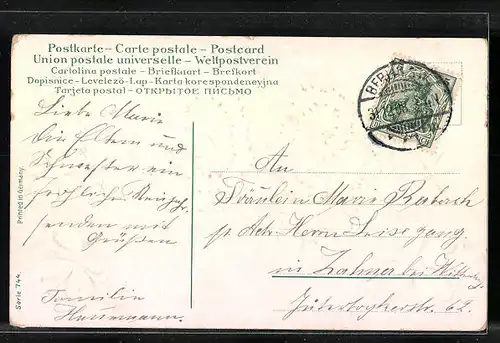 Postkarte – Carte postale – Postcard
Union postale universelle – Weltpostverein
Cartolina postale – Briefkaart – Brefkort
Dopisnice – Levelező-Lap – Karta korespondencyjna
Tarjeta postal – ОТКРЫТОЕ ПИСЬМО
Liebe Marie
Die Eltern und
Schwester ein
fröhliches Neujahr
senden mit
Grüßen
Familie
Printed in Germany.
Serie 744.
BERLIN
An
Fräulein Marie
Herrn
in Zahna bei
Jüterbogkerstr. 62.